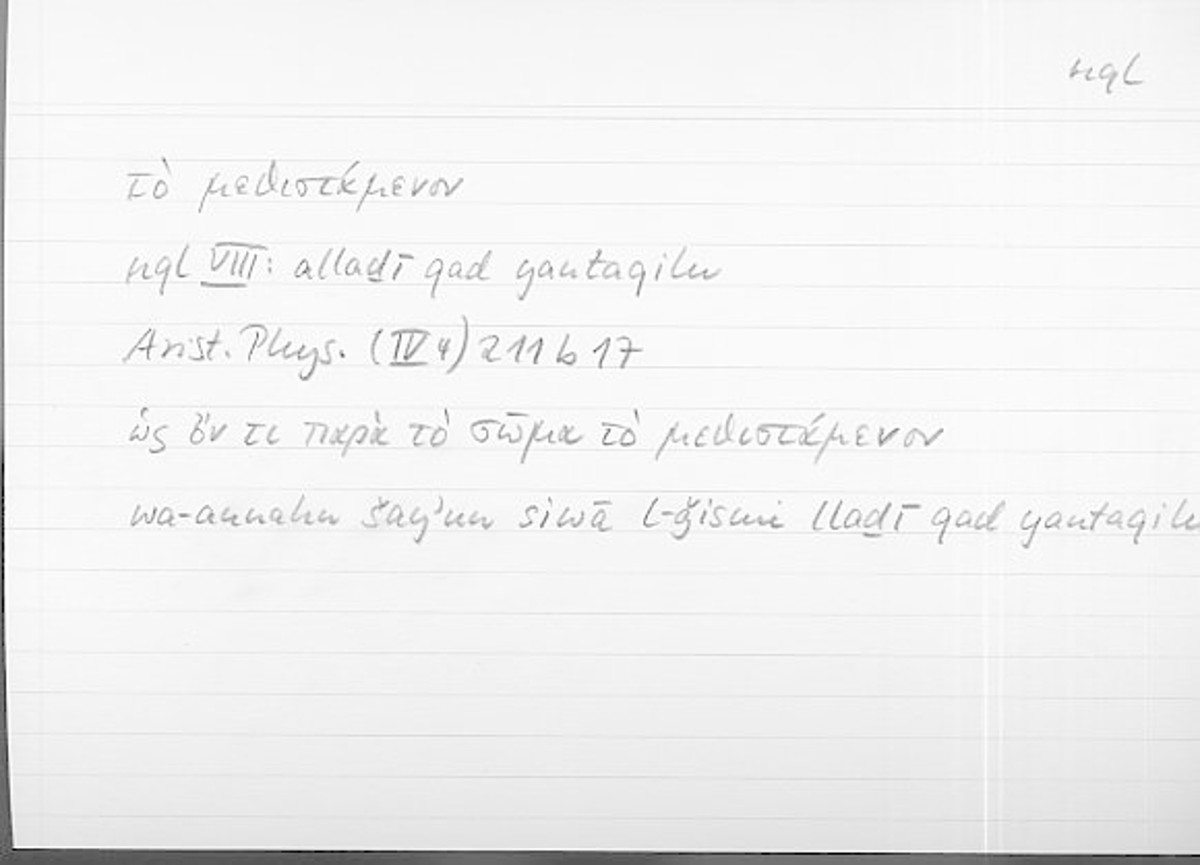 nql
τὸ μεθιστάμενον
nql VIII: allaḏī qad yantaqilu
Arist. Phys. (IV 4) 211 b 17
ὡς ὄν τι παρὰ τὸ σῶμα τὸ μεθιστάμενον
wa-annahu šayʾun siwā l-ǧismi llaḏī qad yantaqilu